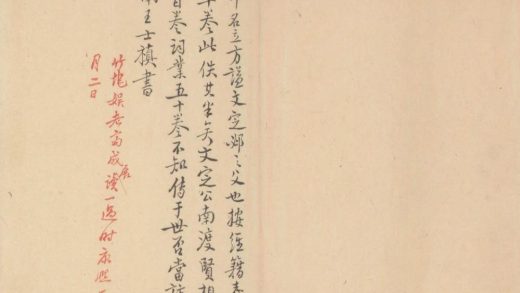 名立方諡文定邲之父也按經籍志
十卷此佚其半矣文定公南渡賢相
百卷詞業五十卷不知傳于世否當訪
南王士禛書
竹垞娛老齋成展讀一過時康熙
月二日